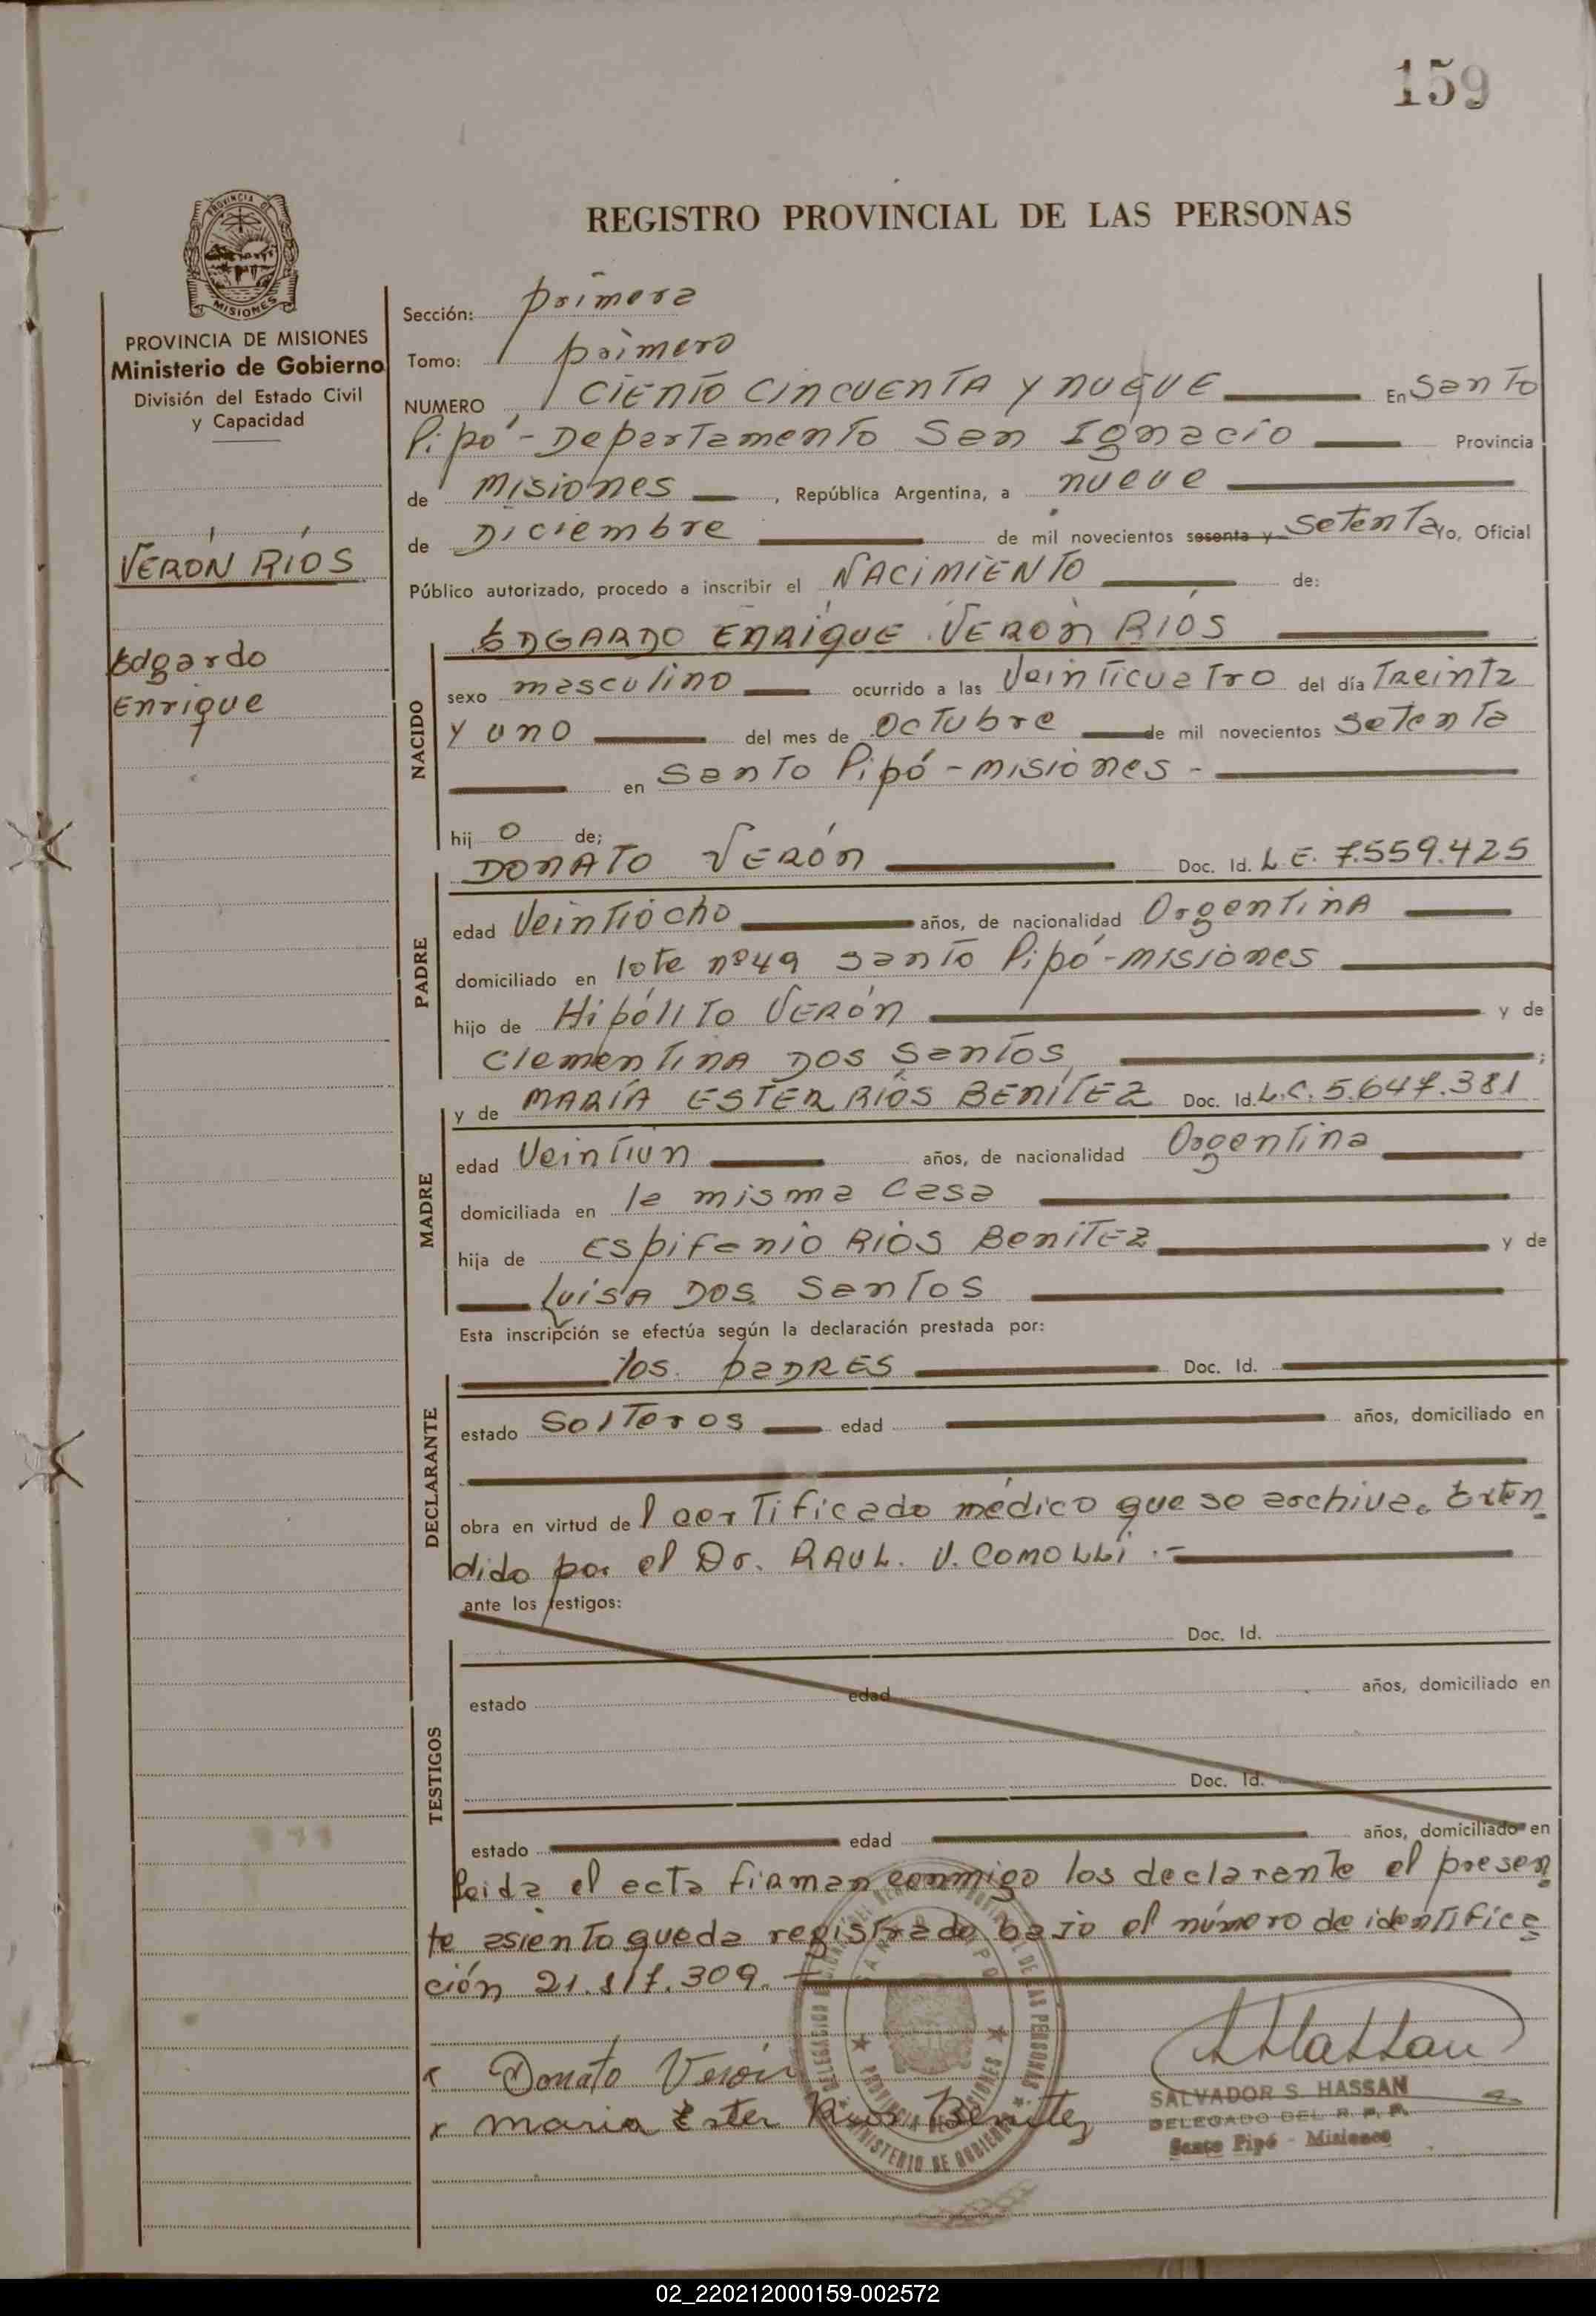 159
PROVINCIA DE
MISIONES
PROVINCIA DE MISIONES
Ministerio de Gobierno
División del Estado Civil
y Capacidad
VERÓN RÍOS
Edgardo
Enrique
REGISTRO PROVINCIAL DE LAS PERSONAS
Sección: primera
Tomo: primero
NUMERO CIENTO CINCUENTA Y NUEVE En Santo
Pipó - Departamento San Ignacio Provincia
de Misiones, República Argentina, a nueve
de Diciembre de mil novecientos sesenta y setenta Yo, Oficial
Público autorizado, procedo a inscribir el NACIMIENTO de:
NACIDO
EDGARDO ENRIQUE VERÓN RÍOS
sexo masculino ocurrido a las Veinticuatro del día treinta
y uno del mes de Octubre de mil novecientos setenta
en Santo Pipó - misiones -
hij o de;
PADRE
DONATO VERÓN Doc. Id. L.E. 7.559.425
edad Veintiocho años, de nacionalidad Argentina
domiciliado en lote nº 49 Santo Pipó - misiones
hijo de Hipólito VERÓN y de
Clementina DOS Santos ;
MADRE
y de MARÍA ESTER RÍOS BENÍTEZ Doc. Id. L.C. 5.647.381
edad Veintiun años, de nacionalidad Argentina
domiciliada en la misma casa
hija de Espifanio RÍOS BENITEZ y de
Luisa DOS Santos
Esta inscripción se efectúa según la declaración prestada por:
DECLARANTE
los padres Doc. Id.
estado Solteros edad años, domiciliado en
obra en virtud de l certificado médico que se archiva. Exten
dido por el Dr. RAUL. V. COMOLLI . -
ante los testigos:
TESTIGOS
Doc. Id.
estado edad años, domiciliado en
Doc. Id.
estado edad años, domiciliado en
leida el acta firman conmigo los declarante el presen
te asiento queda registrado bajo el número de identifica
ción 21.117.309. -
Donato Verón
Maria Ester Rios Benitez
SALVADOR S. HASSAN
DELEGADO DEL R. P. P.
Santo Pipó - Misiones
SANTO PIPO
PROVINCIA DE MISIONES
MINISTERIO DE GOBIERNO
02_220212000159-002572